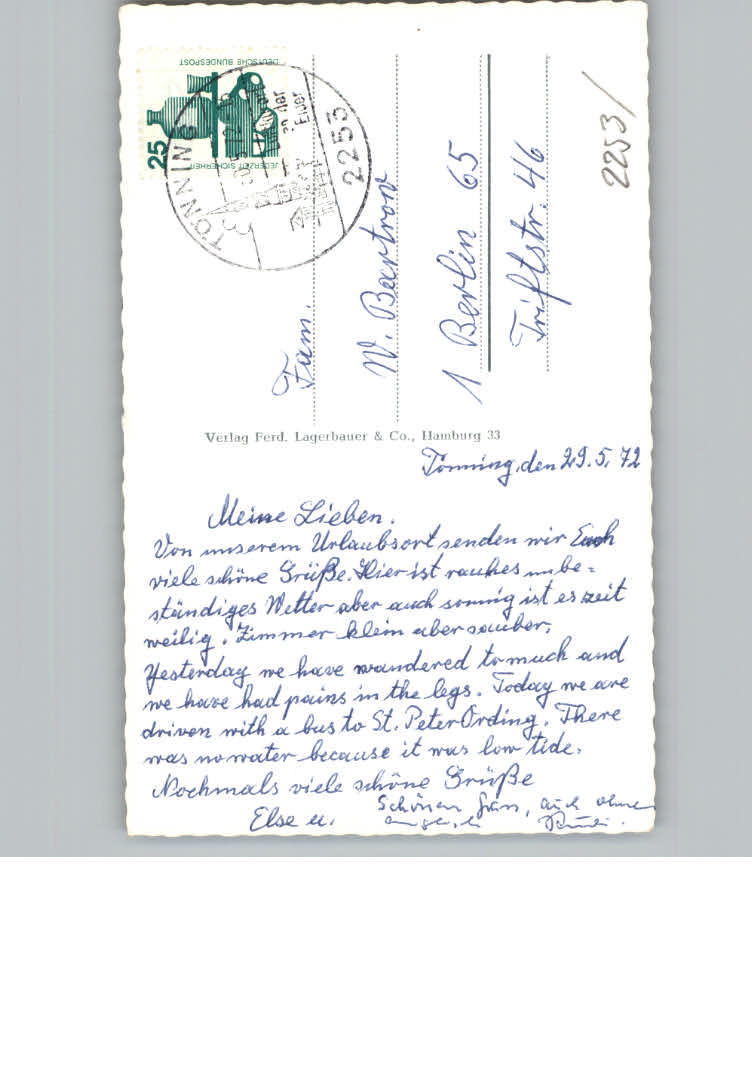 DEUTSCHE BUNDESPOST
25
JEDERZEIT SICHERHEIT
TÖNNING
an der
Eider
2253
2253/
Fam.
W. Bartrow
1 Berlin 65
Triftstr. 46
Verlag Ferd. Lagerbauer & Co., Hamburg 33
Tönning, den 29.5.72
Meine Lieben.
Von unserem Urlaubsort senden wir Euch
viele schöne Grüße. Hier ist rauhes unbe=
ständiges Wetter aber auch sonnig ist es zeit
weilig. Zimmer klein aber sauber.
Yesterday we have wandered to much and
we have had pains in the legs. Today we are
driven with a bus to St. Peter Ording. There
was no water because it was low tide.
Nochmals viele schöne Grüße
Else u.
Schönen Gruß, auch ohne